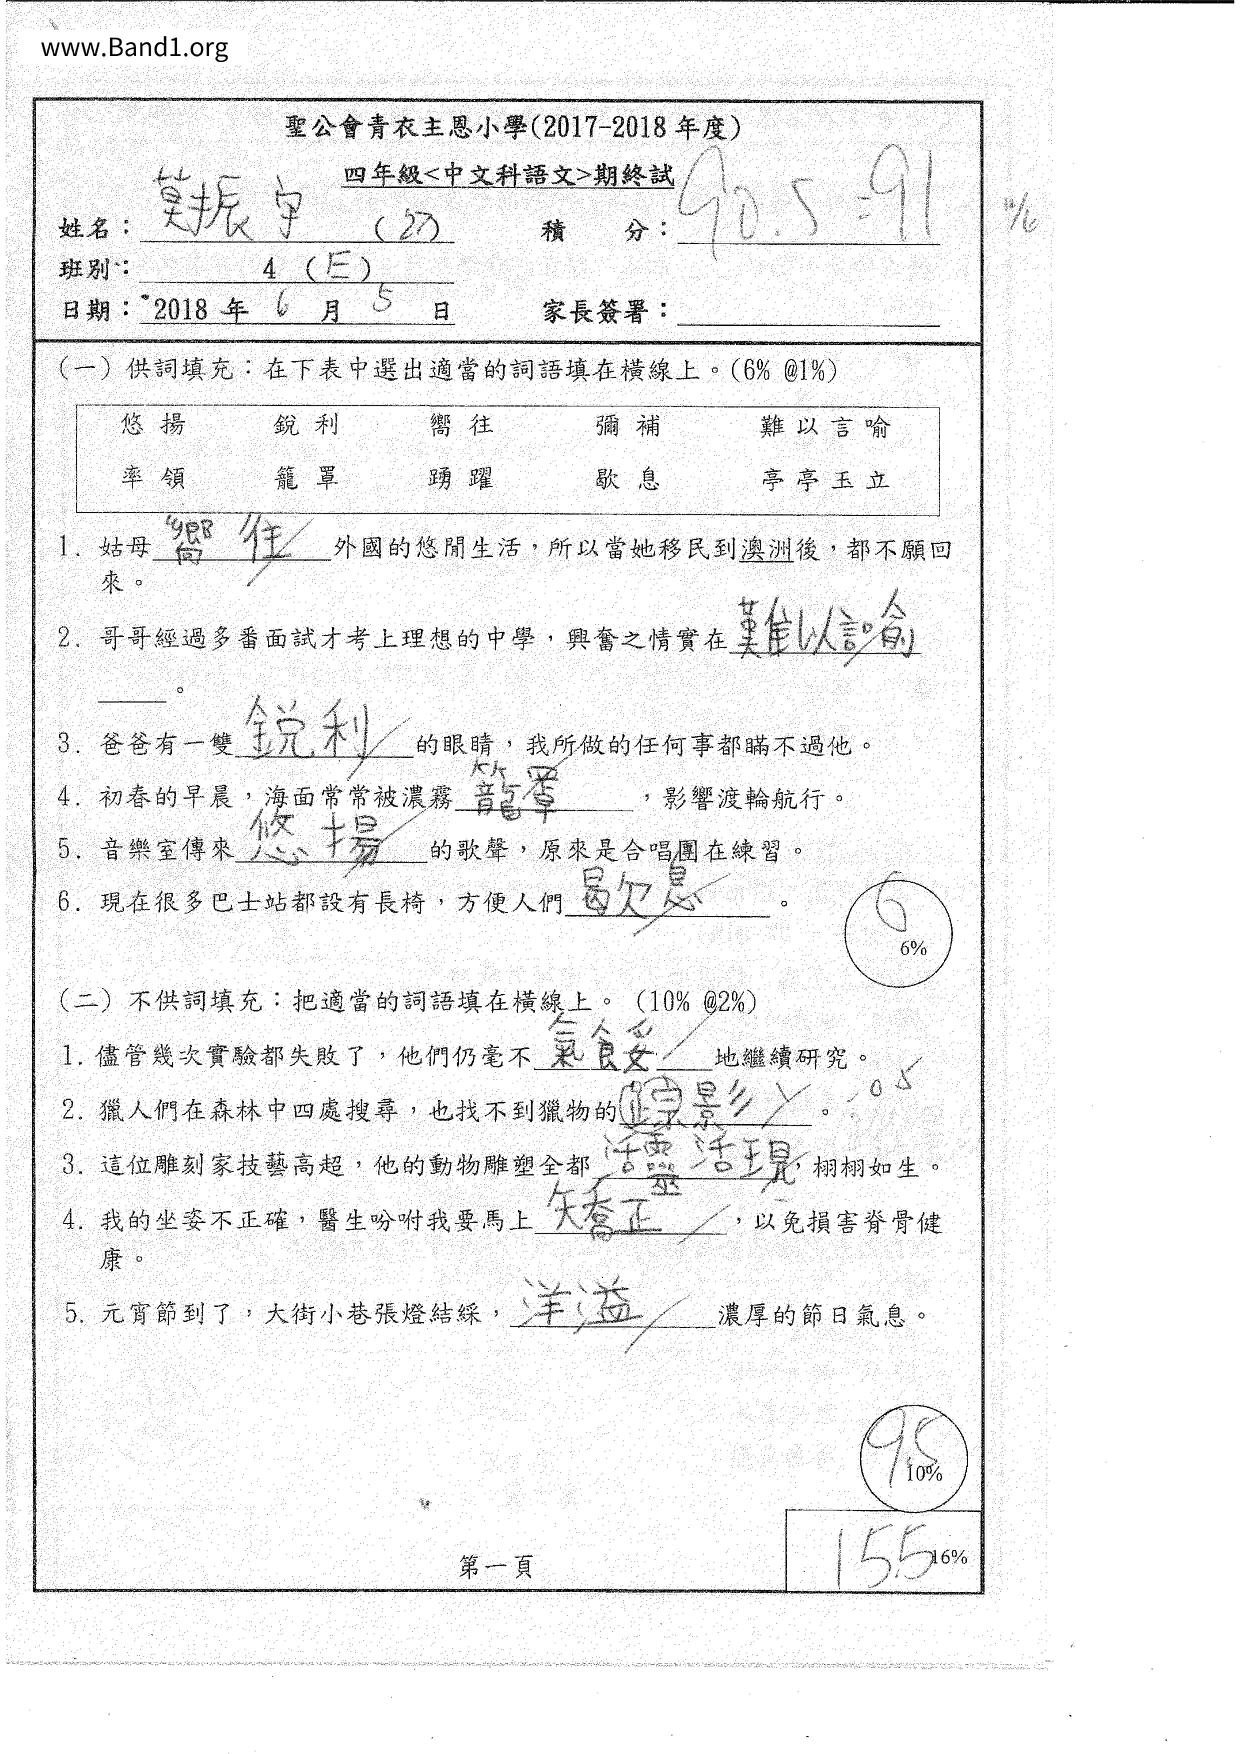 www.Band1.org
聖公會青衣主恩小學(2017-2018年度)
四年級<中文科語文>期終試
姓名：莫振宇 (27) 積分：90.5=91
班別：4 (E)
日期：2018年6月5日 家長簽署：
(一) 供詞填充：在下表中選出適當的詞語填在橫線上。(6% @1%)
悠揚 銳利 嚮往 彌補 難以言喻
率領 籠罩 踴躍 歇息 亭亭玉立
1. 姑母嚮往外國的悠閒生活，所以當她移民到澳洲後，都不願回
來。
2. 哥哥經過多番面試才考上理想的中學，興奮之情實在難以言喻
。
3. 爸爸有一雙銳利的眼睛，我所做的任何事都瞞不過他。
4. 初春的早晨，海面常常被濃霧籠罩，影響渡輪航行。
5. 音樂室傳來悠揚的歌聲，原來是合唱團在練習。
6. 現在很多巴士站都設有長椅，方便人們歇息。
6
6%
(二) 不供詞填充：把適當的詞語填在橫線上。 (10% @2%)
1. 儘管幾次實驗都失敗了，他們仍毫不氣餒地繼續研究。
2. 獵人們在森林中四處搜尋，也找不到獵物的踪影。 0.5
3. 這位雕刻家技藝高超，他的動物雕塑全都活靈活現，栩栩如生。
4. 我的坐姿不正確，醫生吩咐我要馬上矯正，以免損害脊骨健
康。
5. 元宵節到了，大街小巷張燈結綵，洋溢濃厚的節日氣息。
9.5
10%
15.5 16%
第一頁